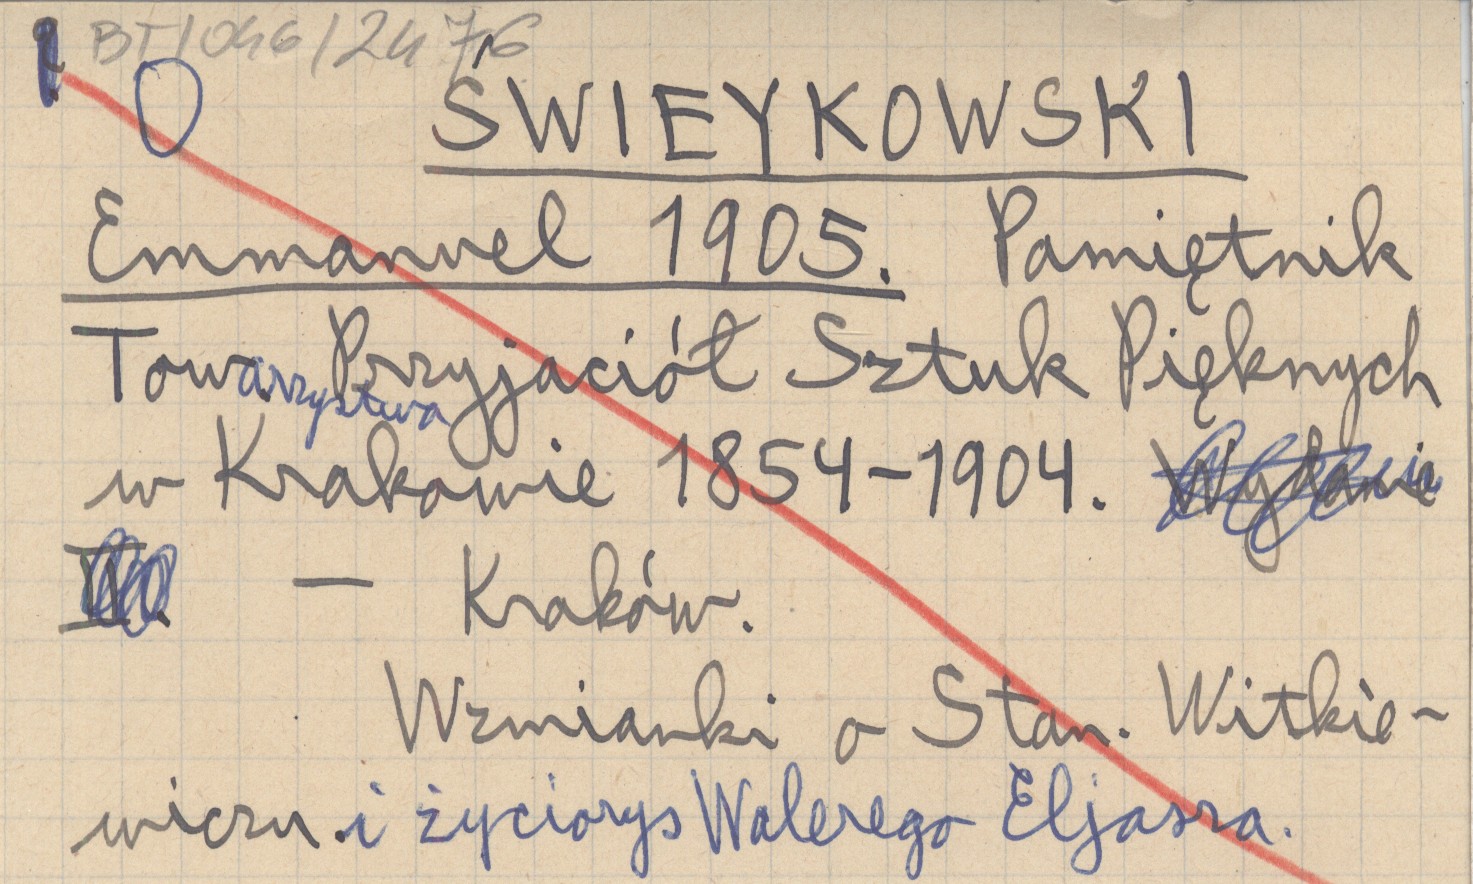 BT/046/2476
ŚWIEYKOWSKI
Emmanuel 1905. Pamiętnik
Towarzystwa Przyjaciół Sztuk Pięknych
w Krakowie 1854-1904. Wydanie
II. — Kraków.
Wzmianki o Stan. Witkie-
wiczu. i życiorys Walerego Eljasza.